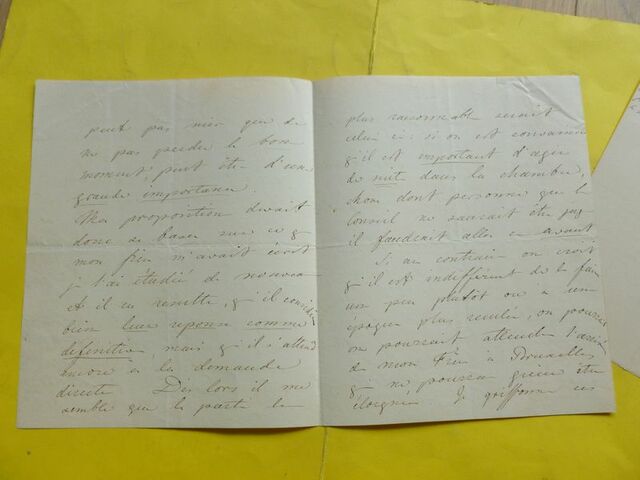 peut pas nier que de
ne pas perdre le bon
moment, peut être d'une
grande importance.
Ma proposition devait
donc se baser sur ce q
mon frère m'avait écrit
je l'ai étudié de nouveau
et il en résulte, qu'il considère
bien leur reponse comme
définitive mais qu'il s'attend
encore à la demande
directe Dès lors il me
semble que le parti le
plus raisonnable serait
celui ci: si on est convaincu
qu'il est important d'agir
de suite dans la chambre,
chose dont personne que le
Conseil ne saurait être juge
il faudrait aller en avant
Si au contraire on croit
qu'il est indifférent de le faire
un peu plutôt ou à une
époque plus reculée, on pourrait
on pourrait attendre l'arrivée
de mon Frère à Bruxelles
q ne pourra guère être
éloignée Je griffonne ces